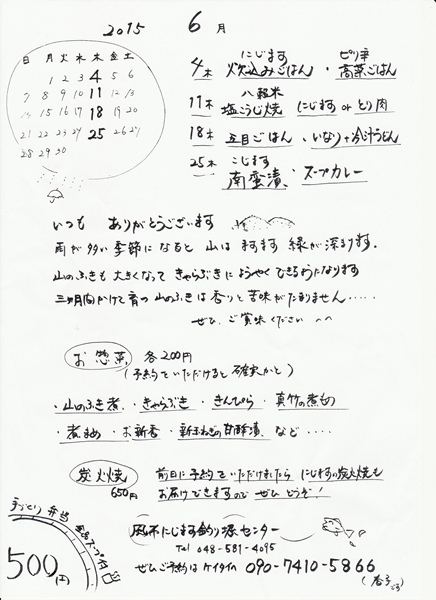 2015 6月
日 月 火 水 木 金 土
1 2 3 4 5 6
7 8 9 10 11 12 13
14 15 16 17 18 19 20
21 22 23 24 25 26 27
28 29 30
4木 にじます炊込みごはん・ピリ辛高菜ごはん
11木 八穀米
塩こうじ焼 にじます or とり肉
18木 五目ごはん・いなり+冷汁うどん
25木 こじます
南蛮漬・スープカレー
いつも ありがとうございます
雨が多い季節になると 山は ますます 緑が深まります.
山のふきも大きくなって きゃらぶきに ようやく できるようになります
三ヶ月間かけて育つ 山のふきは香りと苦味がたまりません・・・・・
ぜひ、ご賞味ください
お惣菜 各200円
(予約をいただけると確実かと)
・山のふき煮・きゃらぶき・きんぴら・真竹の煮もの
・煮まめ・お新香・新玉ねぎの甘酢漬 など・・・・
炭火焼 650円
前日に予約をいただけましたら にじますの炭火焼も
お届けできますので ぜひ どうぞ!
手づくり弁当
スープ付
500(円)
風布にじます釣り堀センター
Tel 048-581-4095
ぜひご予約は ケイタイへ 090-7410-5866